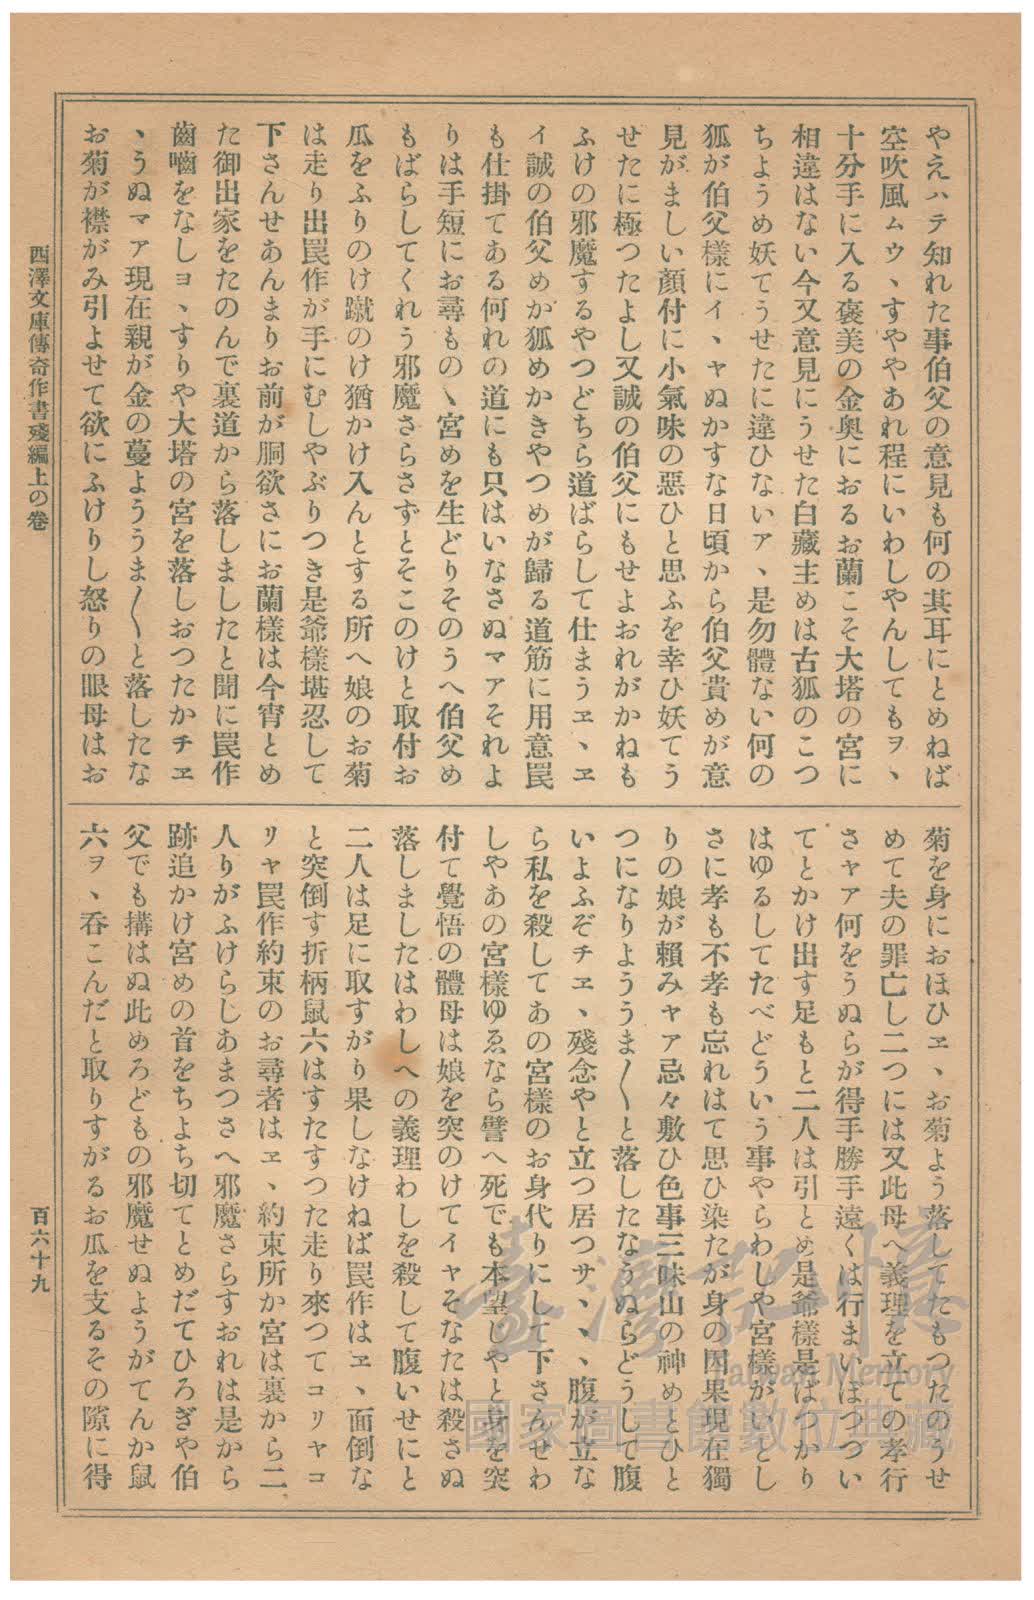 やえハテ知れた事伯父の意見も何の其耳にとめねば
空吹風ムウヽすややあれ程にいわしやんしてもヲヽ
十分手に入る褒美の金奥におるお蘭こそ大塔の宮に
相違はない今又意見にうせた白藏主めは古狐のこつ
ちようめ妖てうせたに違ひないアヽ是勿體ない何の
狐が伯父樣にイヽヤぬかすな日頃から伯父貴めが意
見がましい顏付に小氣味の惡ひと思ふを幸ひ妖てう
せたに極つたよし又誠の伯父にもせよおれがかねも
ふけの邪魔するやつどちら道ばらして仕まうヱヽヱ
イ誠の伯父めか狐めかきやつめが歸る道筋に用意罠
も仕掛てある何れの道にも只はいなさぬマアそれよ
りは手短にお尋もの〻宮めを生どりそのうへ伯父め
もばらしてくれう邪魔さらさずとそこのけと取付お
瓜をふりのけ蹴のけ猶かけ入んとする所へ娘のお菊
は走り出罠作が手にむしやぶりつき是爺樣堪忍して
下さんせあんまりお前が胴欲さにお蘭樣は今宵とめ
た御出家をたのんで裏道から落しましたと聞に罠作
齒嚙をなしヨヽすりや大塔の宮を落しおつたかチヱ
ヽうぬマア現在親が金の蔓ようま〳〵と落したな
お菊が襟がみ引よせて欲にふけりし怒りの眼母はお
菊を身におほひヱヽお菊よう落してたもつたのうせ
めて夫の罪亡し二つには又此母へ義理を立ての孝行
さャア何をうぬらが得手勝手遠くは行まいぼつつい
てとかけ出す足もと二人は引とめ是爺樣是ばつかり
はゆるしてたべどういう事やらわしや宮樣がいとし
さに孝も不孝も忘れはて思ひ染たが身の因果現在獨
りの娘が賴みャア忌々敷ひ色事三昧山の神めとひと
つになりよううま〳〵と落したなうぬらどうして腹
いよふぞチヱヽ殘念やと立つ居つサヽヽ腹が立な
ら私を殺してあの宮樣のお身代りにして下さんせわ
しやあの宮樣ゆゑなら譬へ死でも本望じやと身を突
付て覺悟の體母は娘を突のけてイャそなたは殺さぬ
落しましたはわしへの義理わしを殺して腹いせにと
二人は足に取すがり果しなければ罠作はヱヽ面倒な
と突倒す折柄鼠六はすたすつた走り來つてコリャコ
リヤ罠作約束のお尋者はヱヽ約束所か宮は裏から二
人りがふけらしあまつさへ邪魔さらすおれは是から
跡追かけ宮めの首をちよち切てとめだてひろぎや伯
父でも搆はぬ此めろどもの邪魔せぬようがてんか鼠
六ヲヽ呑こんだと取りすがるお瓜を支るその隙に得
西澤文庫傳奇作書殘編上の卷
百六十九
臺灣記憶
Taiwan Memory
國家圖書館數位典藏